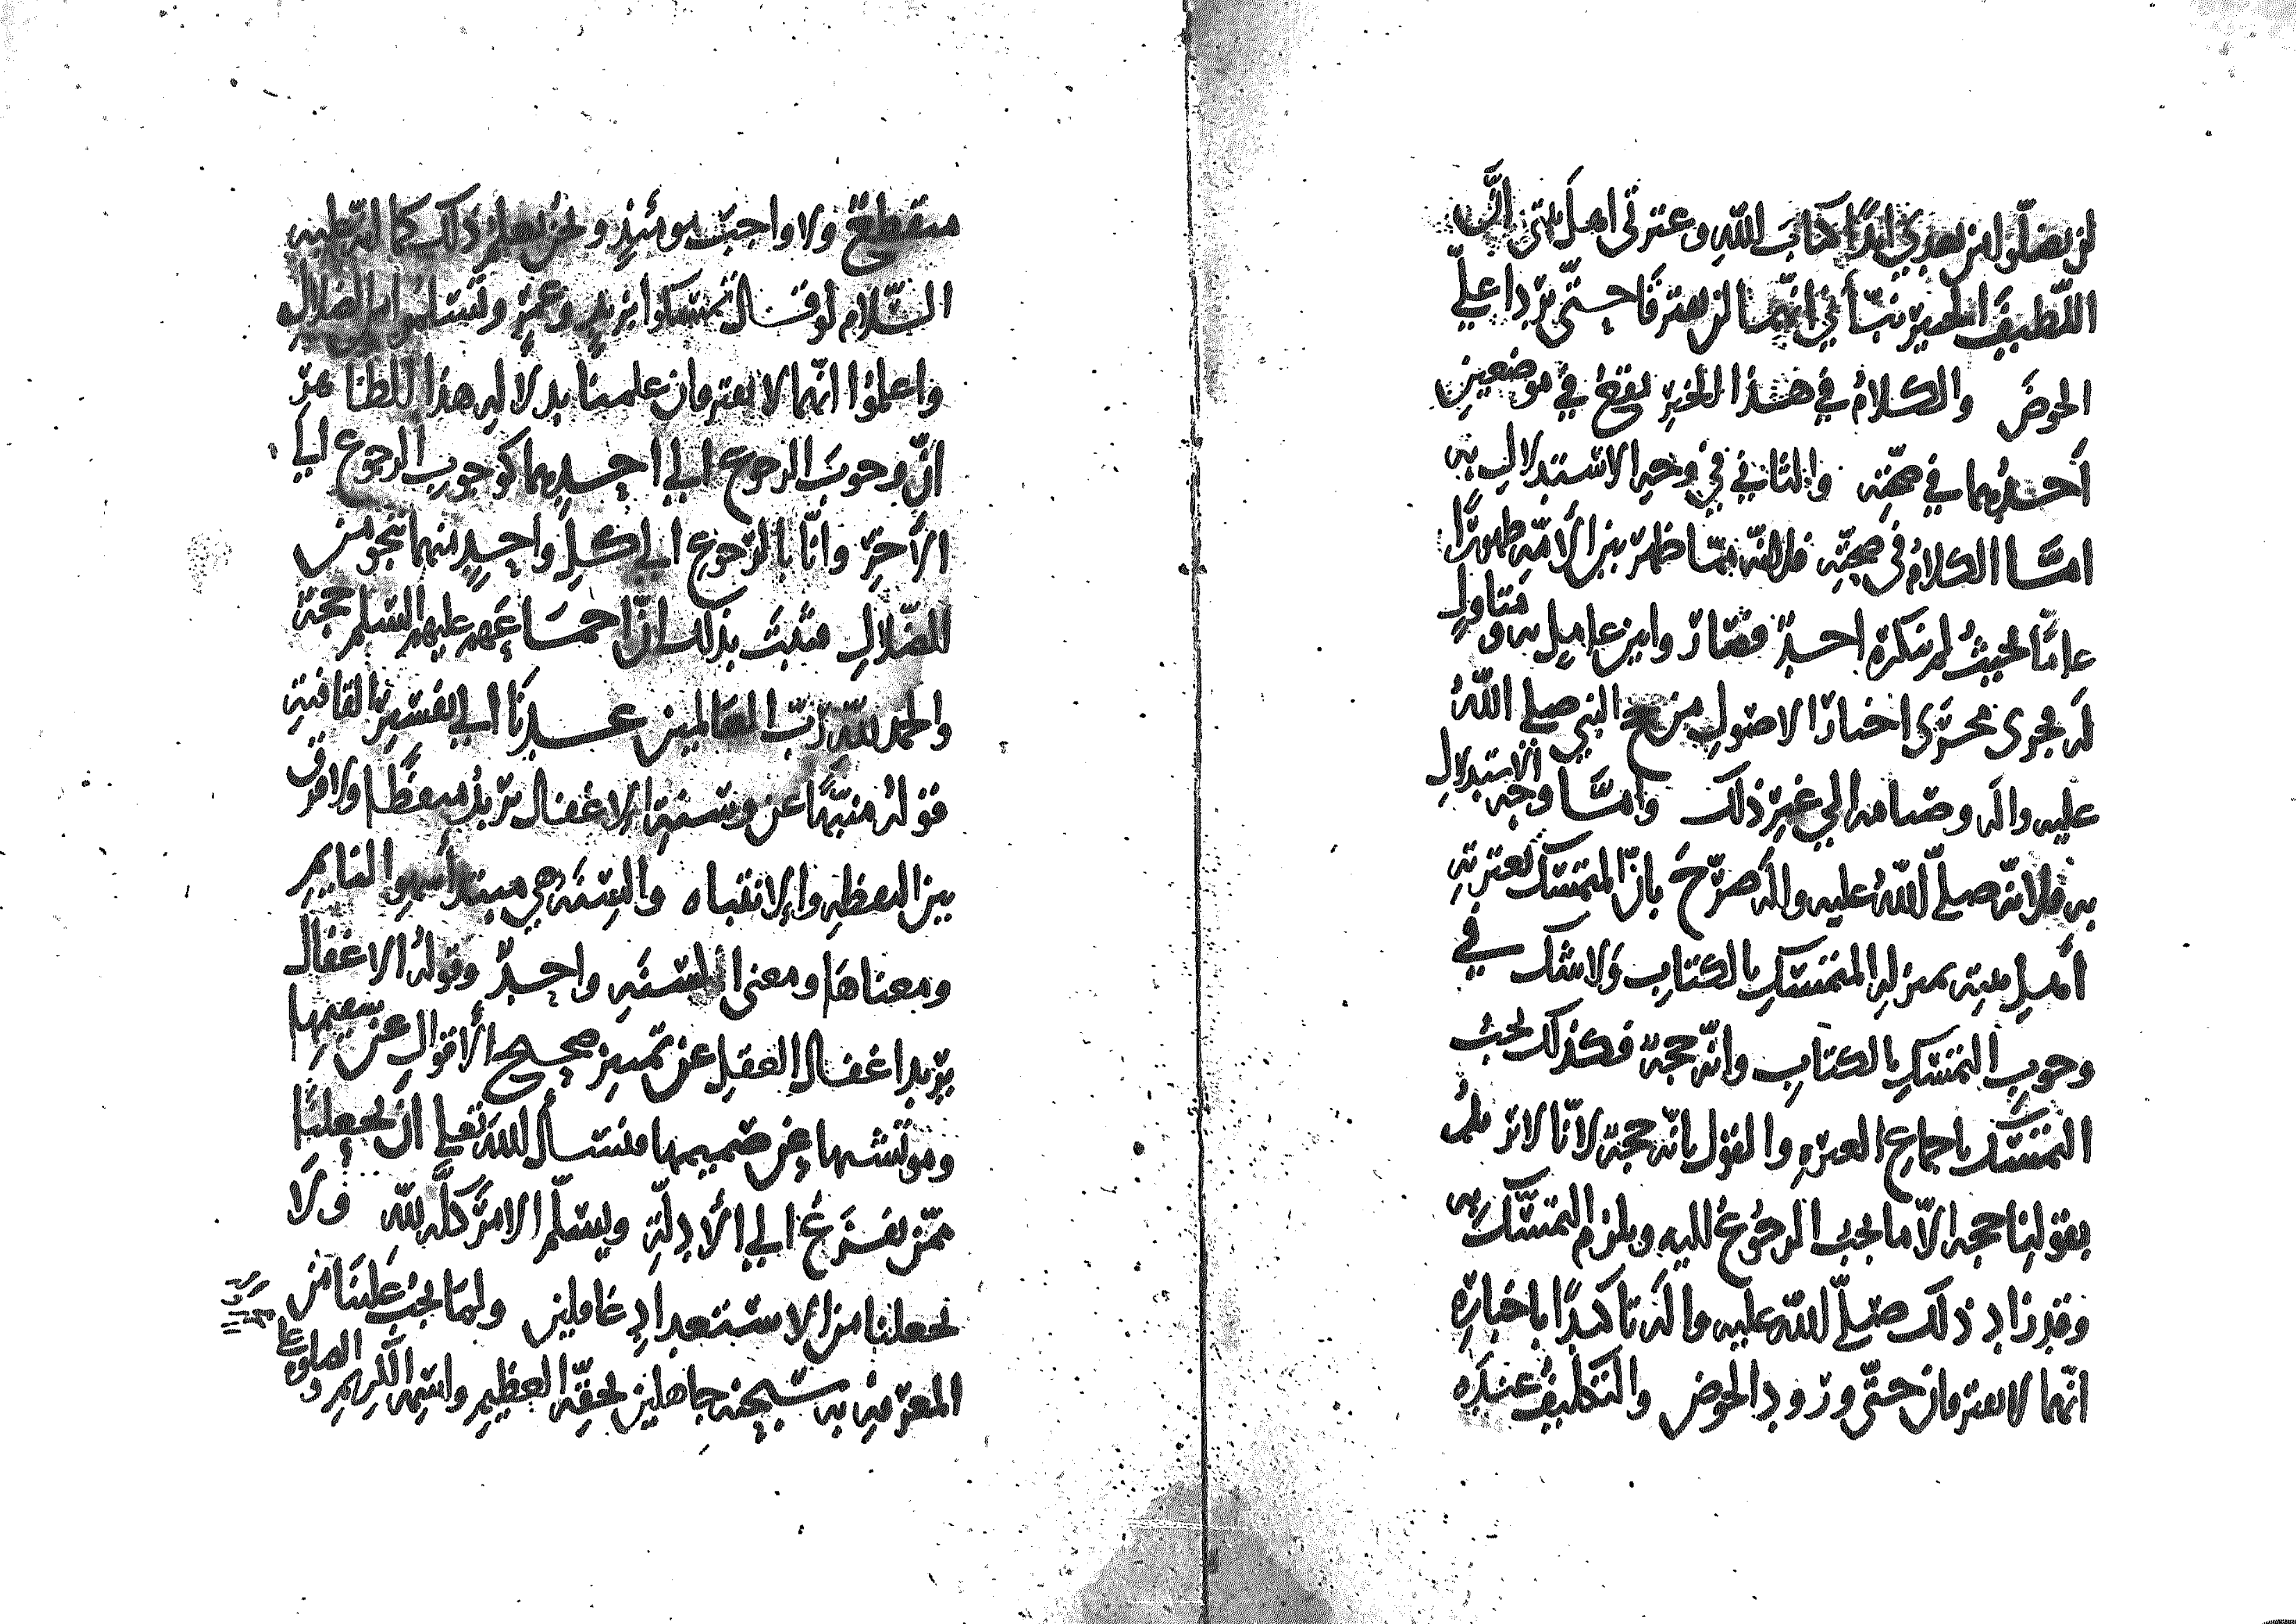 لن تضلوا من بعدي ابدًا كتاب الله وعترتي اهل بيتي انَّ
اللّطيف الخبير نبّأني انّهما لن يفترقا حتّى يردا عليّ
الحوضَ والكلامُ في هذا الخبر يقع في موضعين
أحدُهما في صحّته والثاني في وجه الاستدلال به
امّا الكلامُ في صحّته فلانّه ممّا ظهر بين الأمّة ظهورًا
عامًّا بحيثُ لم ينكره احدٌ فصار وابين عامل به ومتاول
له مجرى مجرَى اخبار الاصول من حج النبي صلى اللهُ
عليه واله وصيامه الى غير ذلك وامّا وجه الاستدلال
به فلانّه صلّى اللهُ عليه واله صرّحَ بانّ المتمسّك بعترته
أهل بيته بمنزلة المتمسّك بالكتاب ولا شك في
وجوب التمسّك بالكتاب وانّه حجة فكذلك يجب
التمسّك باجماع العترة والقول بانّه حجة لانّا لا نريد
بقولنا حجه الاّ ما يجبُ الرجُوعُ اليه ويلزم التمسّك به
وقد زاد ذلك صلّى الله عليه واله تاكيدًا باخباره
انّهما لا يفترقان حتّى ورود الحوض والتكليف عنده
منقطعٌ ولا واجب يومئذٍ ونحن نعلم ذلك كما انّه عليه
السّلام لو قال تمسكوا بزيدٍ وعمرٍ ولستم اهل الضلال
واعلموا انّهما لا يفترقان علمنا بدلالة هذا اللفظ
انّ وجوبَ الرجوع الى احدهما كوجوب الرجوع الى
الأخر وانّا بالرّجوع الى كلّ واحدٍ منهما ننجو من
الضّلال فثبت بذلك انّ اجماعهم عليهم السلم حجة
والحمد لله ربّ العالمين عدنا الى تفسير القافية
قوله منبّهًا عن وسنة الاغفال يريدُ ميقظًا ولا فرق
بين اليقظه والانتباه والسِنَة هي مبتدأ سهو النايم
ومعناها ومعنى الوسنَه واحدٌ وقولهُ الاغفال
يريد اغفال العقل عن تمييز صحيح الأقوال عن سقيمها
ومؤتشبها عن صميمها فنسأل الله تعلى ان يجعلنا
ممّن يفزعُ الى الأدلّة ويسلّم الامر كلّه لله ولا
يجعلنا من الاستعداد غافلين ولما يجبُ علينا من
المعرفة به سبحنه جاهلين بحقّه العظيم واسمه الكريم و
الصلوه على